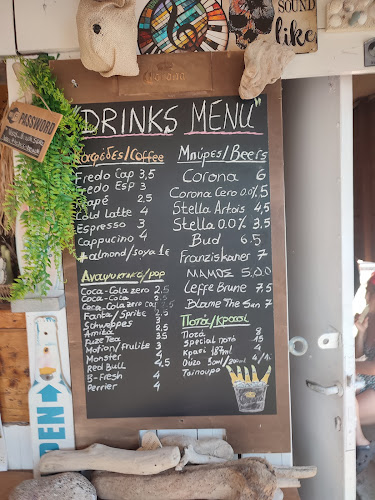 SOUND
like
Corona
PASSWORD
"DRINKS MENU"
Καφέδες/Coffee
Fredo Cap 3,5
Fredo Esp 3
Frapé 2,5
Cold Latte 4
Espresso 3
Cappucino 4
+almond/soya 1€
Αναψυκτικά/pop
Coca-Cola zero 2,5
Coca-Cola 2,5
Coca-Cola zero caf 2,5
Fanta/Sprite 2,5
Schweppes 3
Amita 3
Fuze Tea 3,5
Motion/Frulite 3
Monster 4
Red Bull 4,5
B-Fresh 4
Perrier 4
Μπύρες/Beers
Corona 6
Corona Cero 0.0% 5
Stella Artois 4,5
Stella 0.0% 3,5
Bud 6.5
Franziskaner 7
ΝΑΜΟΣ 5,00
Leffe Brune 7.5
Blame The Sun 7
Ποτά/Κρασί
Ποτά 8
Special ποτά 15
Κρασί 187ml 4
Ούζο 50ml/200ml
Τσίπουρο
OPEN